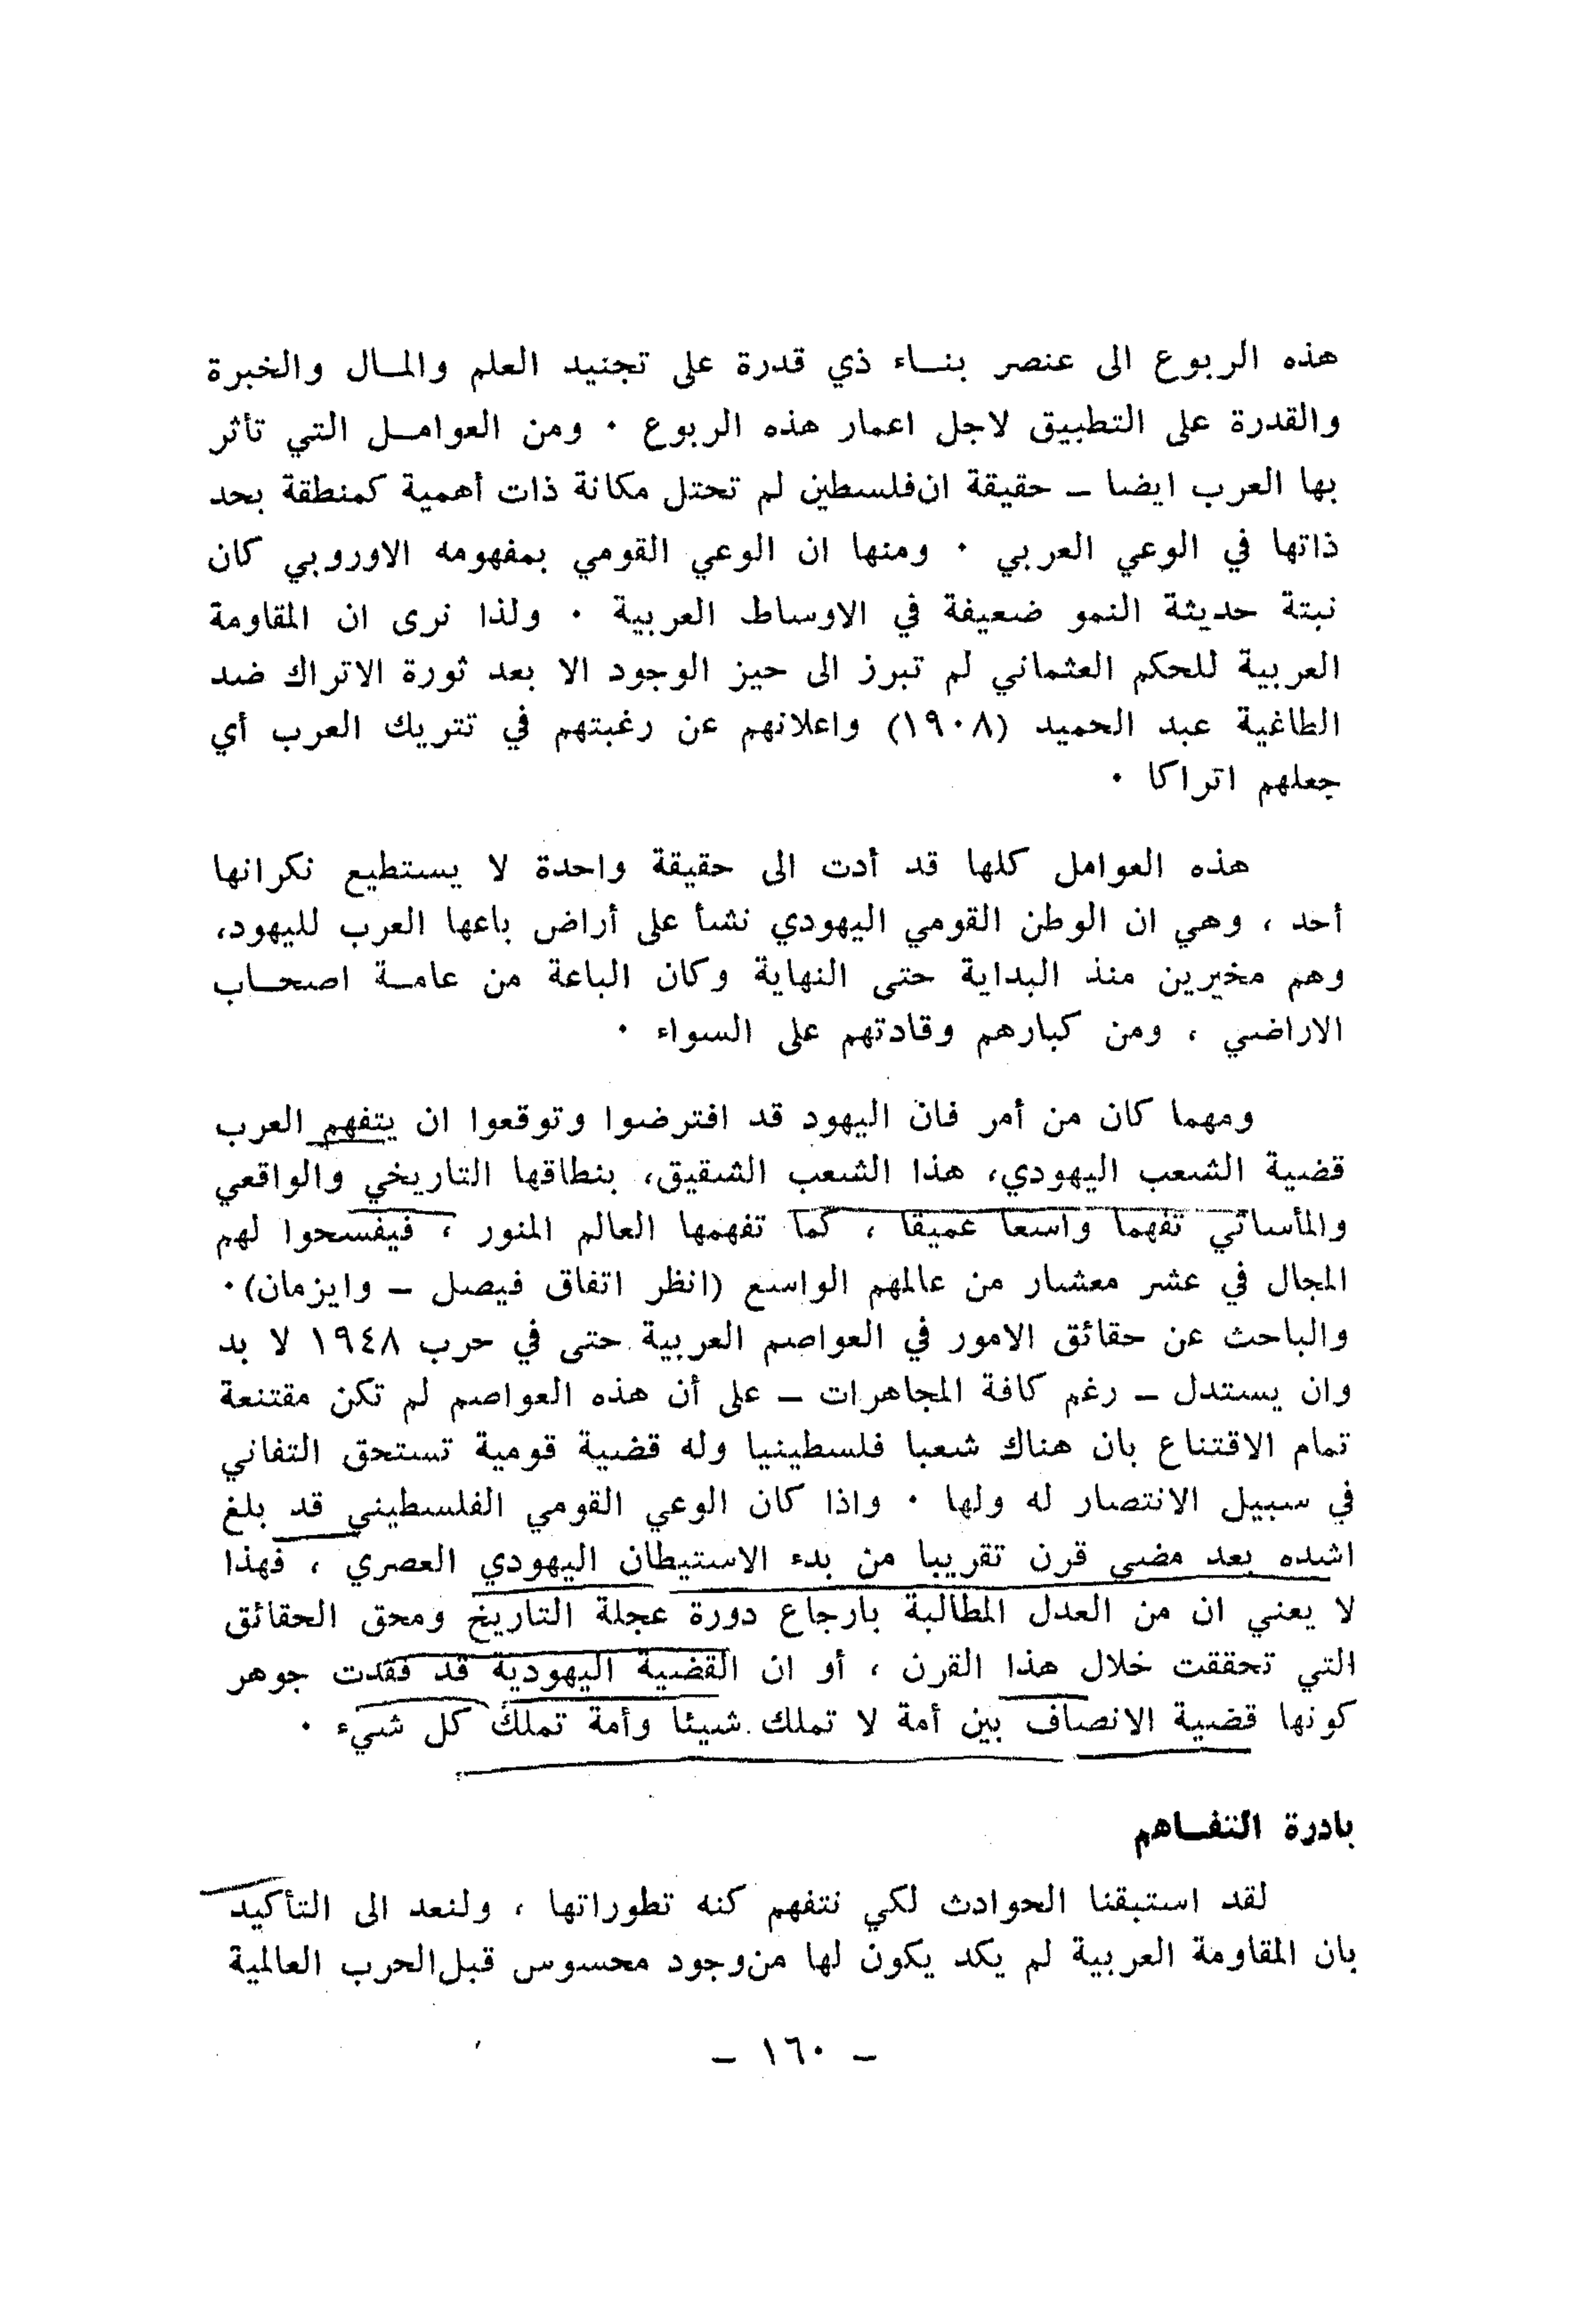 هذه الربوع الى عنصر بنـاء ذي قدرة على تجنيد العلم والمـال والخبرة
والقدرة على التطبيق لاجل اعمار هذه الربوع ٠ ومن العوامـل التي تأثر
بها العرب ايضا ـ حقيقة ان فلسطين لم تحتل مكانة ذات أهمية كمنطقة بحد
ذاتها في الوعي العربي ٠ ومنها ان الوعي القومي بمفهومه الاوروبي كان
نبتة حديثة النمو ضعيفة في الاوساط العربية ٠ ولذا نرى ان المقاومة
العربية للحكم العثماني لم تبرز الى حيز الوجود الا بعد ثورة الاتراك ضد
الطاغية عبد الحميد (١٩٠٨) واعلانهم عن رغبتهم في تتريك العرب أي
جعلهم اتراكا ٠
هذه العوامل كلها قد أدت الى حقيقة واحدة لا يستطيع نكرانها
أحد ، وهي ان الوطن القومي اليهودي نشأ على أراض باعها العرب لليهود،
وهم مخيرين منذ البداية حتى النهاية وكان الباعة من عامـة اصحـاب
الاراضي ، ومن كبارهم وقادتهم على السواء ٠
ومهما كان من أمر فان اليهود قد افترضوا وتوقعوا ان يتفهم العرب
قضية الشعب اليهودي، هذا الشعب الشقيق، بنطاقها التاريخي والواقعي
والمأساتي تفهما واسعا عميقا ، كما تفهمها العالم المنور ، فيفسحوا لهم
المجال في عشر معشار من عالمهم الواسع (انظر اتفاق فيصل ـ وايزمان)٠
والباحث عن حقائق الامور في العواصم العربية حتى في حرب ١٩٤٨ لا بد
وان يستدل ـ رغم كافة المجاهرات ـ على أن هذه العواصم لم تكن مقتنعة
تمام الاقتناع بان هناك شعبا فلسطينيا وله قضية قومية تستحق التفاني
في سبيل الانتصار له ولها ٠ واذا كان الوعي القومي الفلسطيني قد بلغ
اشده بعد مضي قرن تقريبا من بدء الاستيطان اليهودي العصري ، فهذا
لا يعني ان من العدل المطالبة بارجاع دورة عجلة التاريخ ومحق الحقائق
التي تحققت خلال هذا القرن ، أو ان القضية اليهودية قد فقدت جوهر
كونها قضية الانصاف بين أمة لا تملك شيئا وأمة تملك كل شيء ٠
بادرة التفـاهم
لقد استبقنا الحوادث لكي نتفهم كنه تطوراتها ، ولنعد الى التأكيد
بان المقاومة العربية لم يكد يكون لها من وجود محسوس قبل الحرب العالمية
ـ ١٦٠ ـ